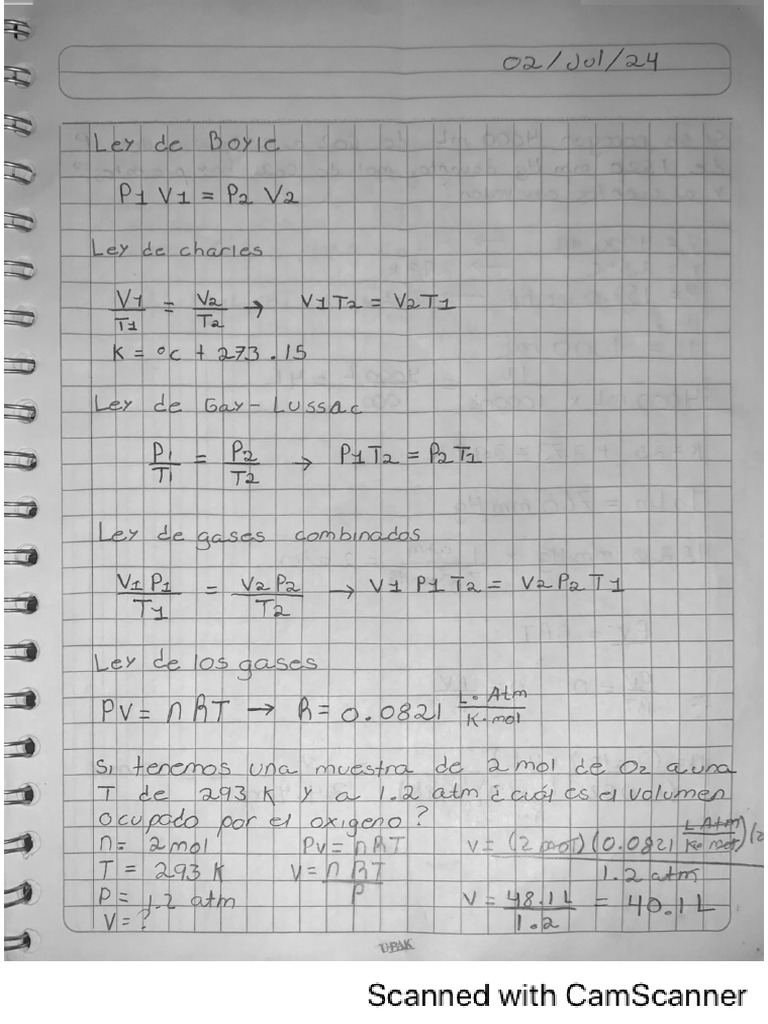 02/Jul/24
Ley de Boyle
P1 V1 = P2 V2
Ley de charles
V1/T1 = V2/T2 → V1T2 = V2T1
K = °C + 273.15
Ley de Gay-Lussac
P1/T1 = P2/T2 → P1T2 = P2T1
Ley de gases combinados
V1P1/T1 = V2P2/T2 → V1 P1 T2 = V2P2T1
Ley de los gases
PV = nRT → R = 0.0821 L·Atm/K·mol
Si tenemos una muestra de 2 mol de O2 a una
T de 293 K y a 1.2 atm ¿cuál es el volumen
ocupado por el oxigeno?
n = 2 mol PV = nRT V = (2 mol)(0.0821 L Atm/K·mol)(2
T = 293 K V = nRT/P 1.2 atm
P = 1.2 atm V = 48.1 L/1.2 = 40.1 L
V = ?
Scanned with CamScanner